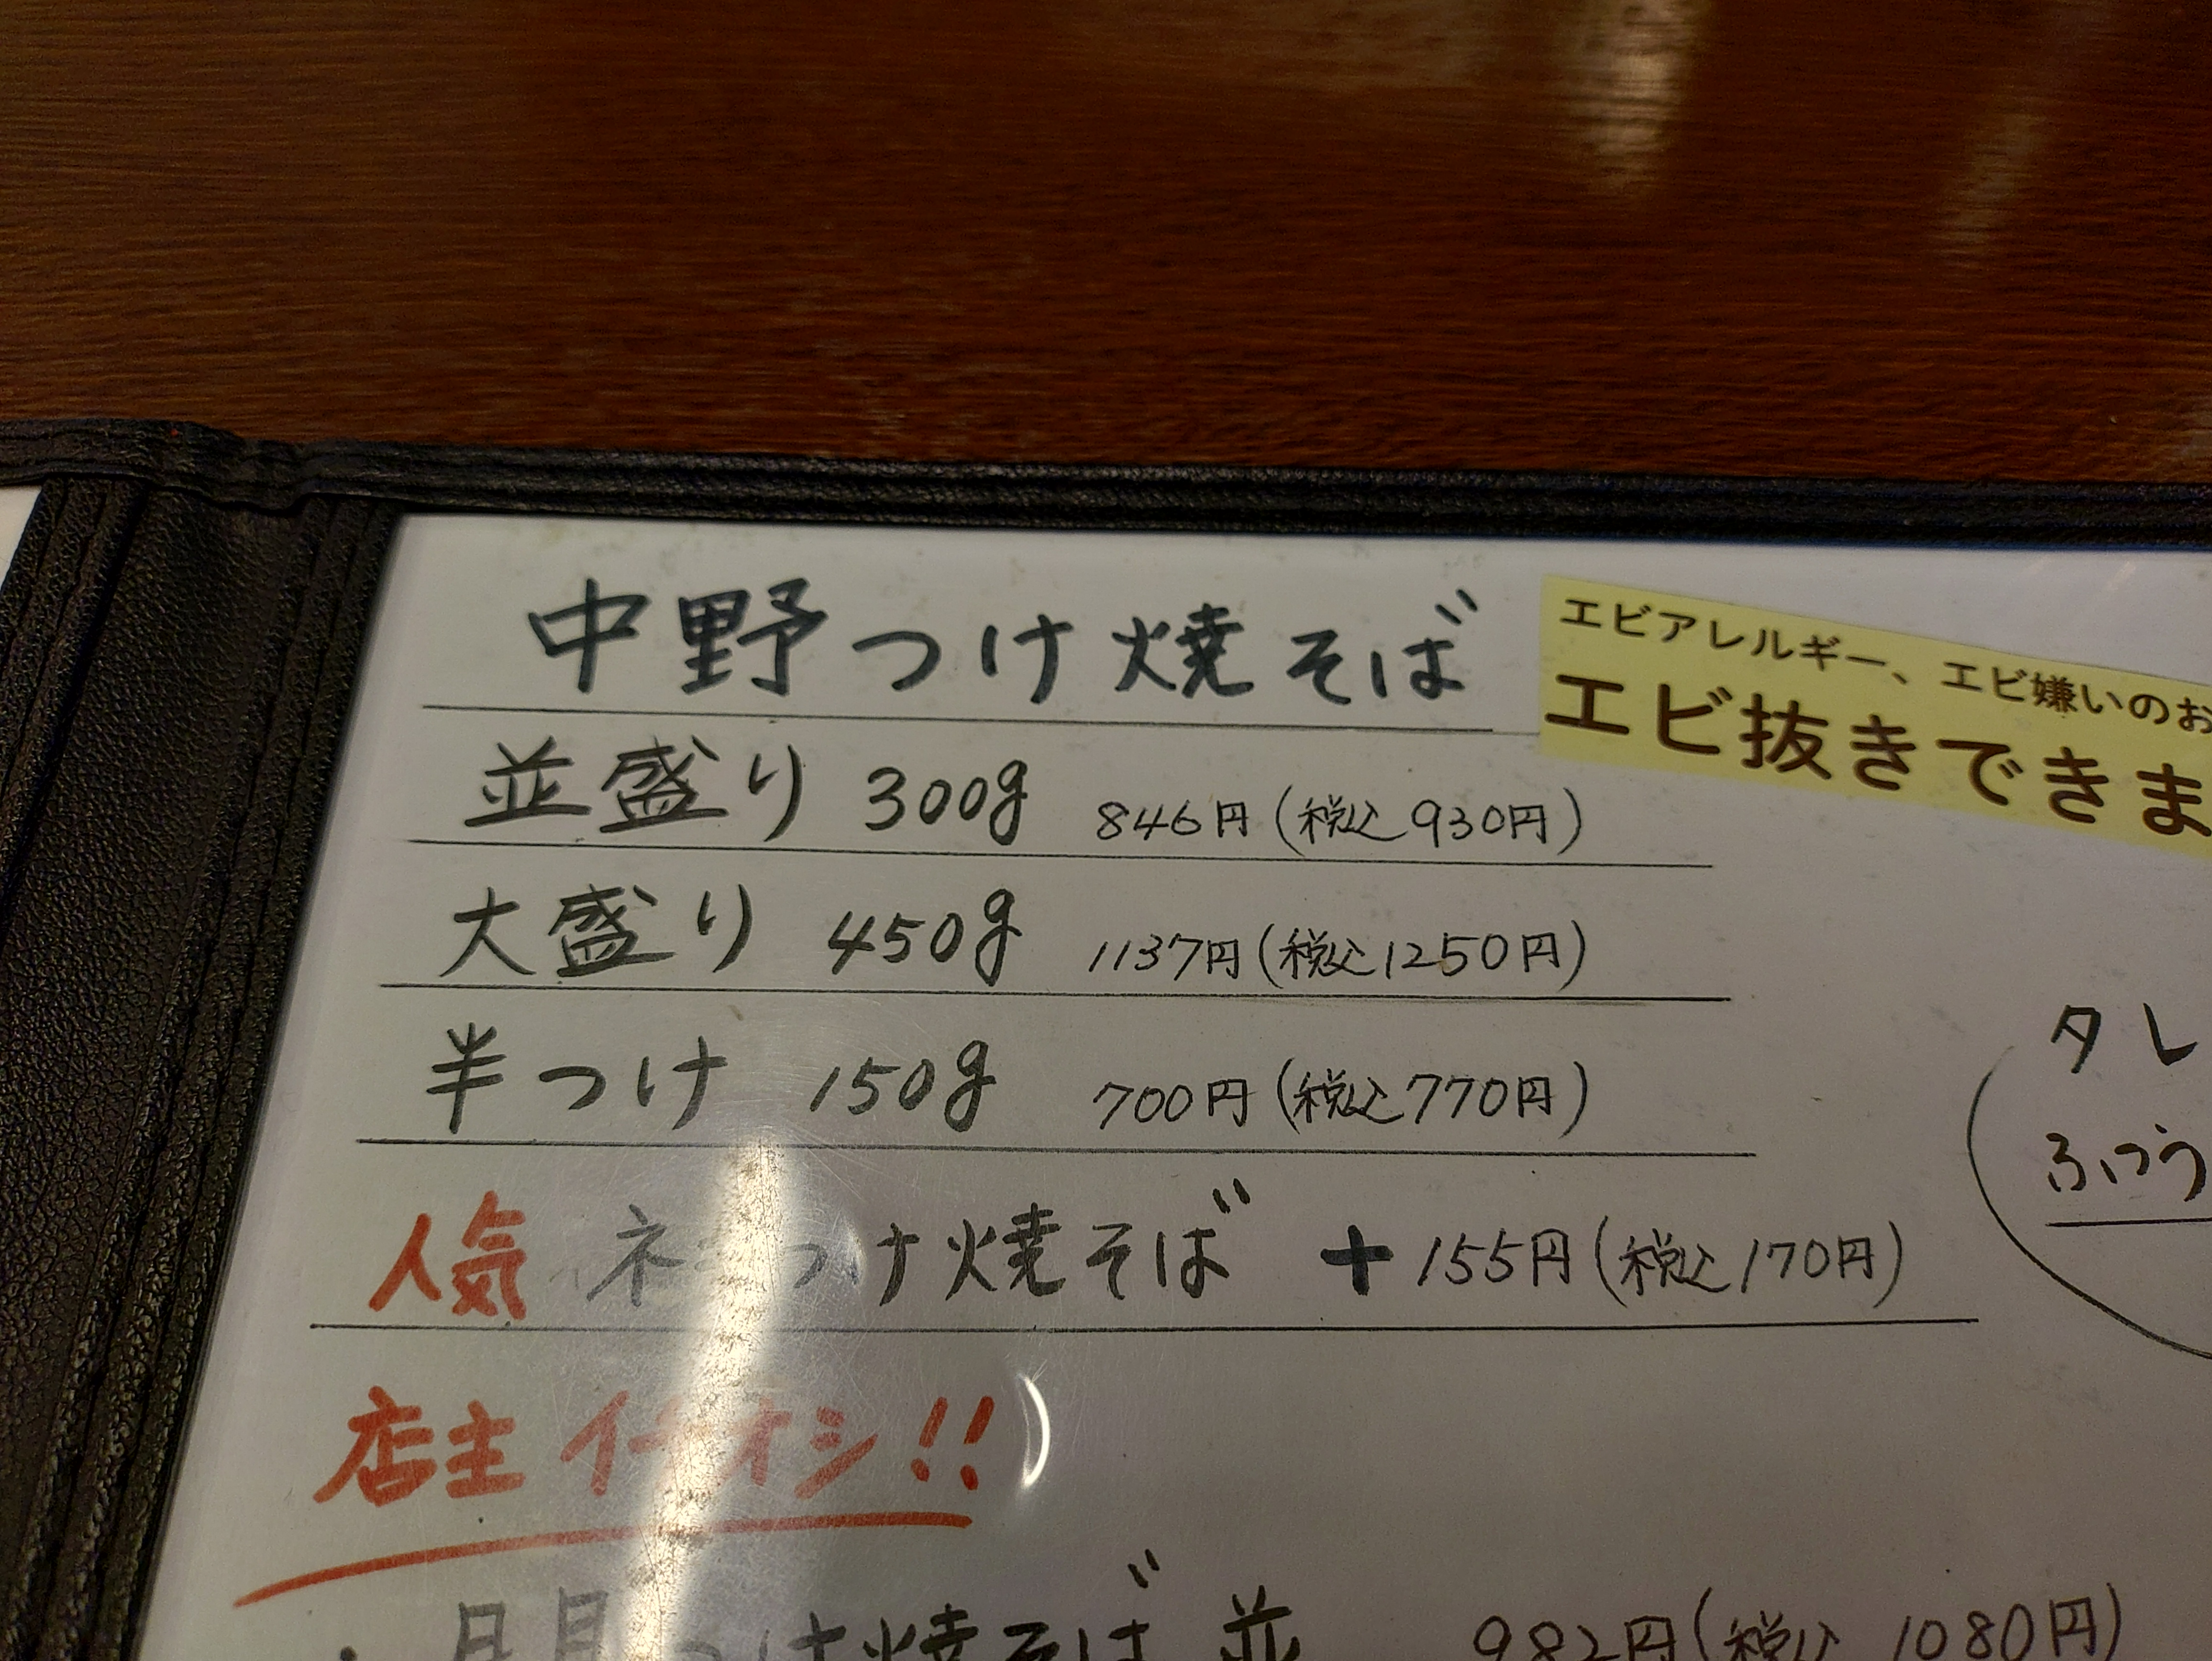 中野つけ焼そば
エビアレルギー、エビ嫌いのお
エビ抜きできま
並盛り 300g 846円(税込930円)
大盛り 450g 1137円(税込1250円)
半つけ 150g 700円(税込770円)
タレ
ふつう
人気 つけ焼そば +155円(税込170円)
店主イチオシ!!
・月見つけ焼そば 並 982円(税込 1080円)